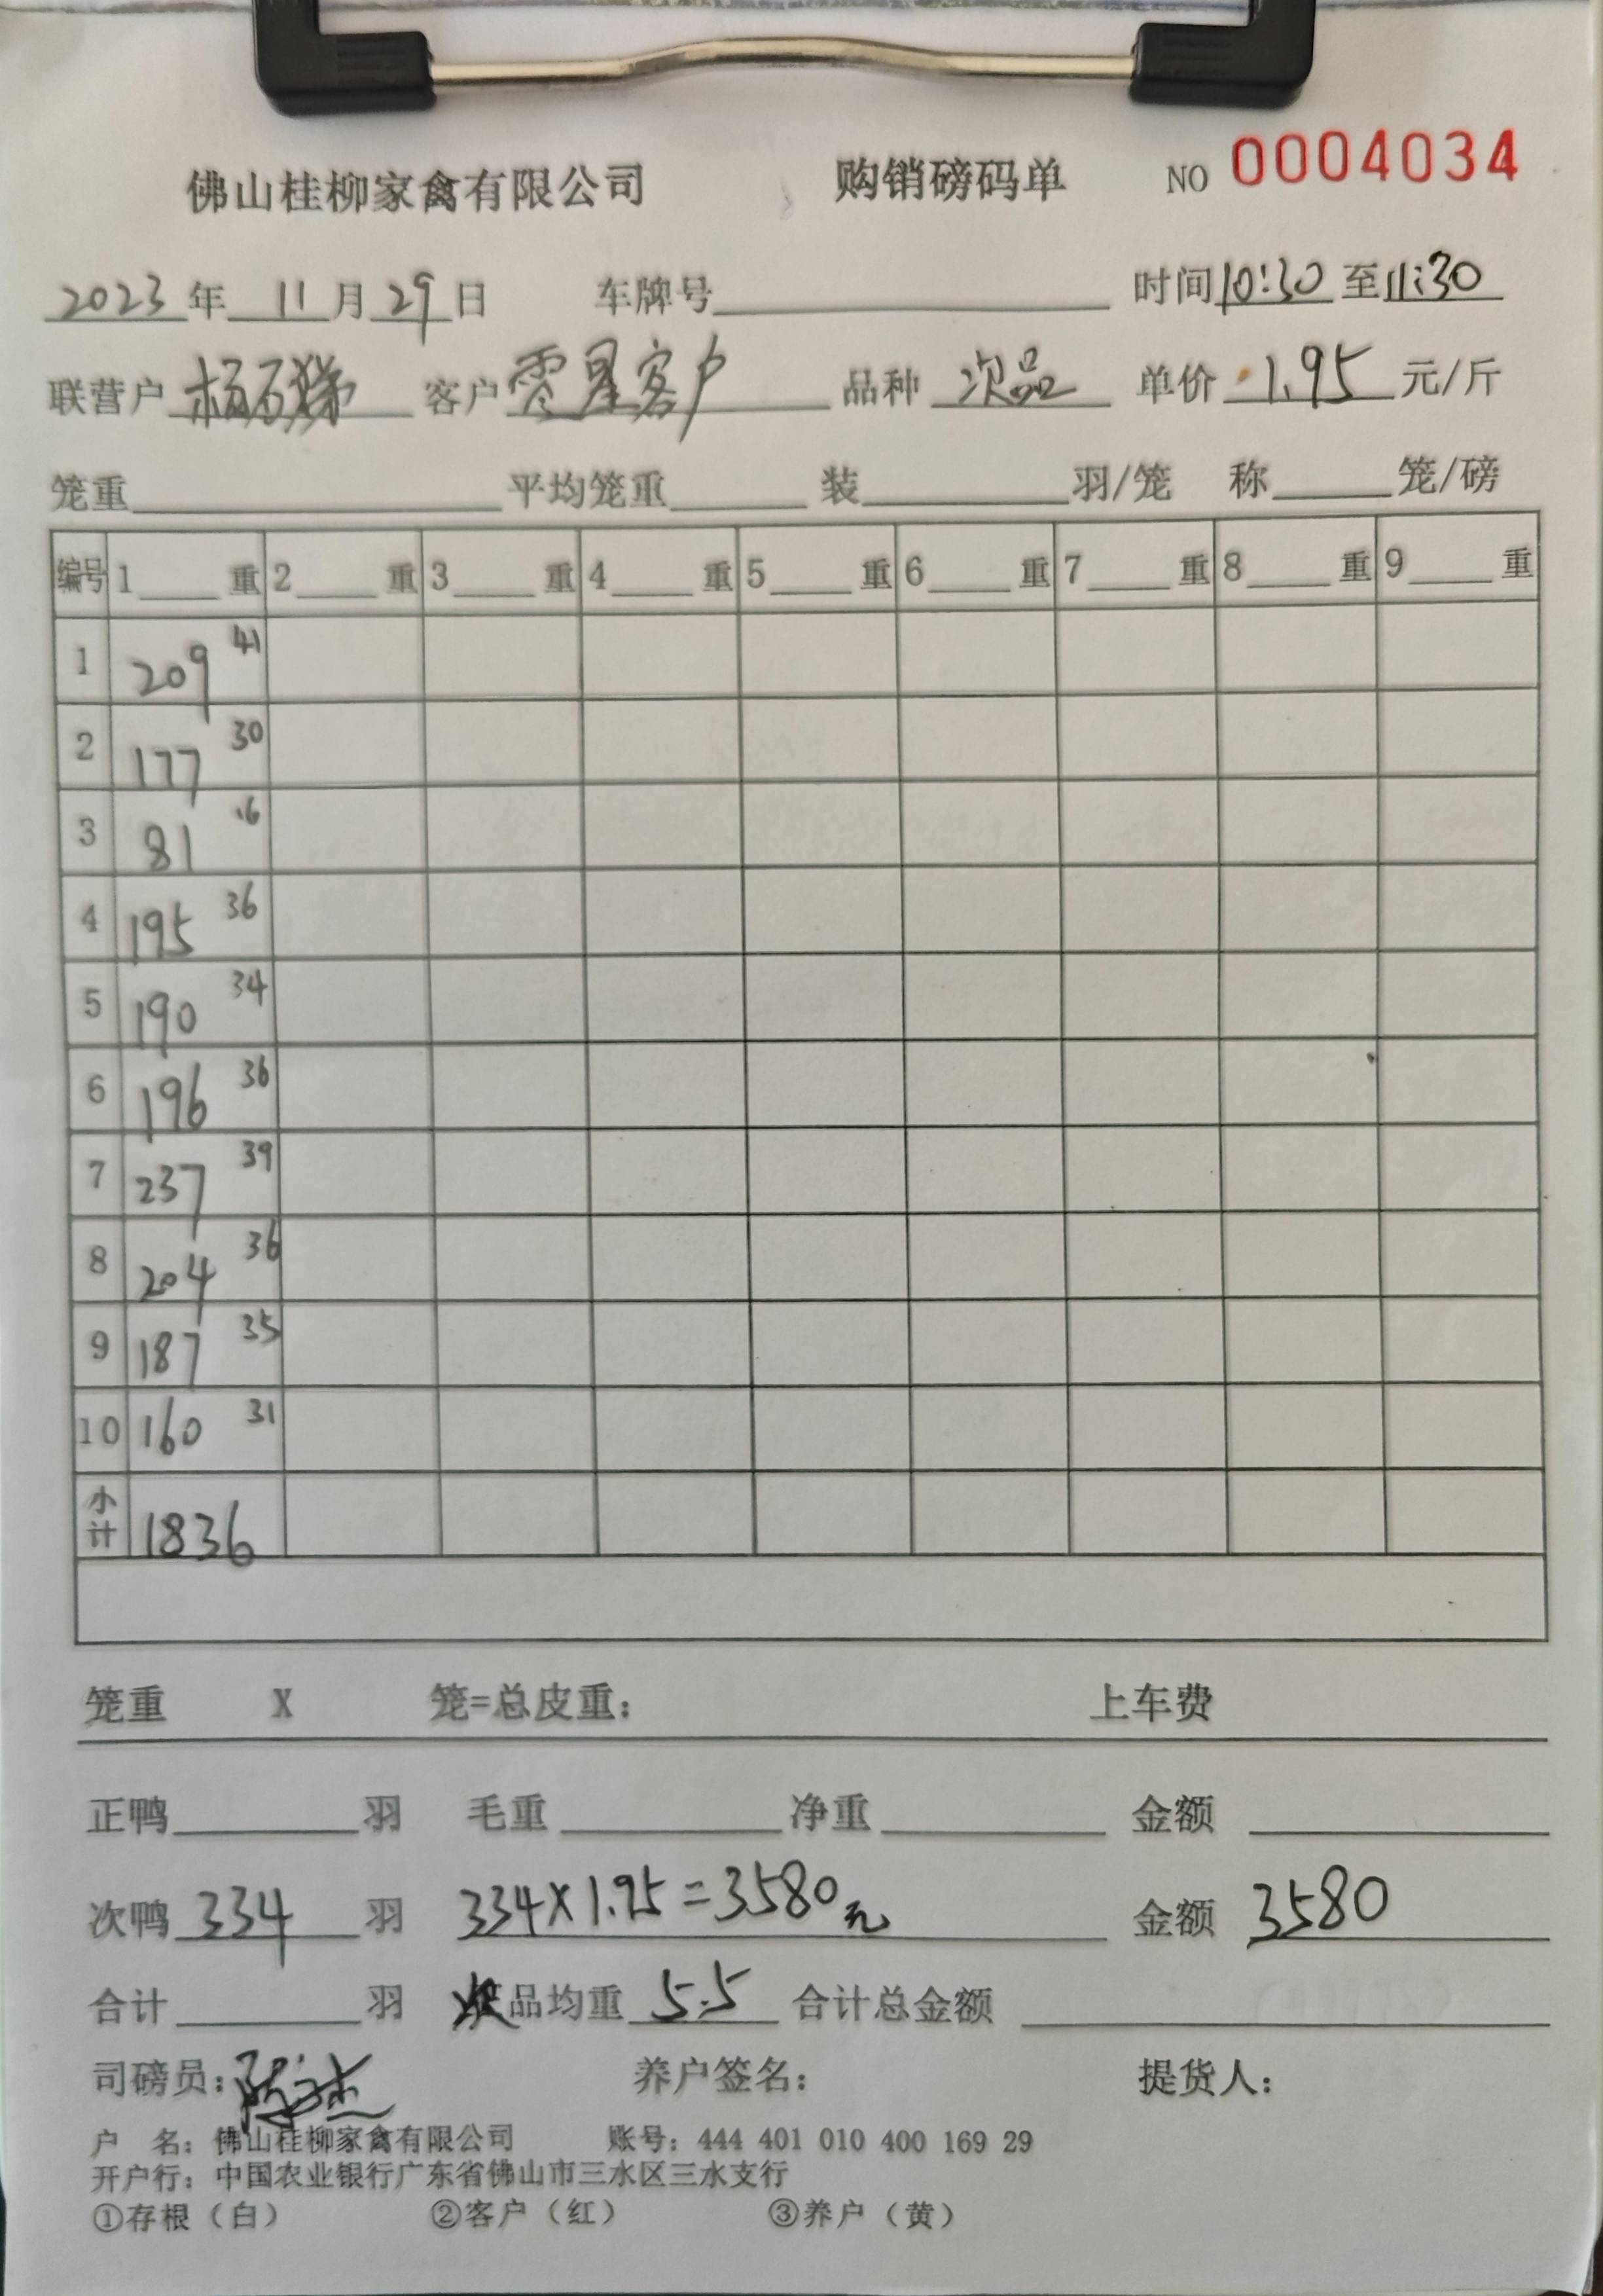 佛山桂柳家禽有限公司 购销磅码单 NO 0004034
2023年 11月29日 车牌号 时间10:30至11:30
联营户 客户 零星客户 品种 次品 单价 1.95 元/斤
笼重 平均笼重 装 羽/笼 称 笼/磅
编号 1 重 2 重 3 重 4 重 5 重 6 重 7 重 8 重 9 重
1 209 41
2 177 30
3 81 16
4 195 36
5 190 34
6 196 36
7 237 39
8 204 36
9 187 35
10 160 31
小计 1836
笼重 X 笼=总皮重: 上车费
正鸭 羽 毛重 净重 金额
次鸭 334 羽 334×1.95=3580元 金额 3580
合计 羽 次品均重 5.5 合计总金额
司磅员: 养户签名: 提货人:
户 名: 佛山桂柳家禽有限公司 账号: 444 401 010 400 169 29
开户行: 中国农业银行广东省佛山市三水区三水支行
①存根（白） ②客户（红） ③养户（黄）